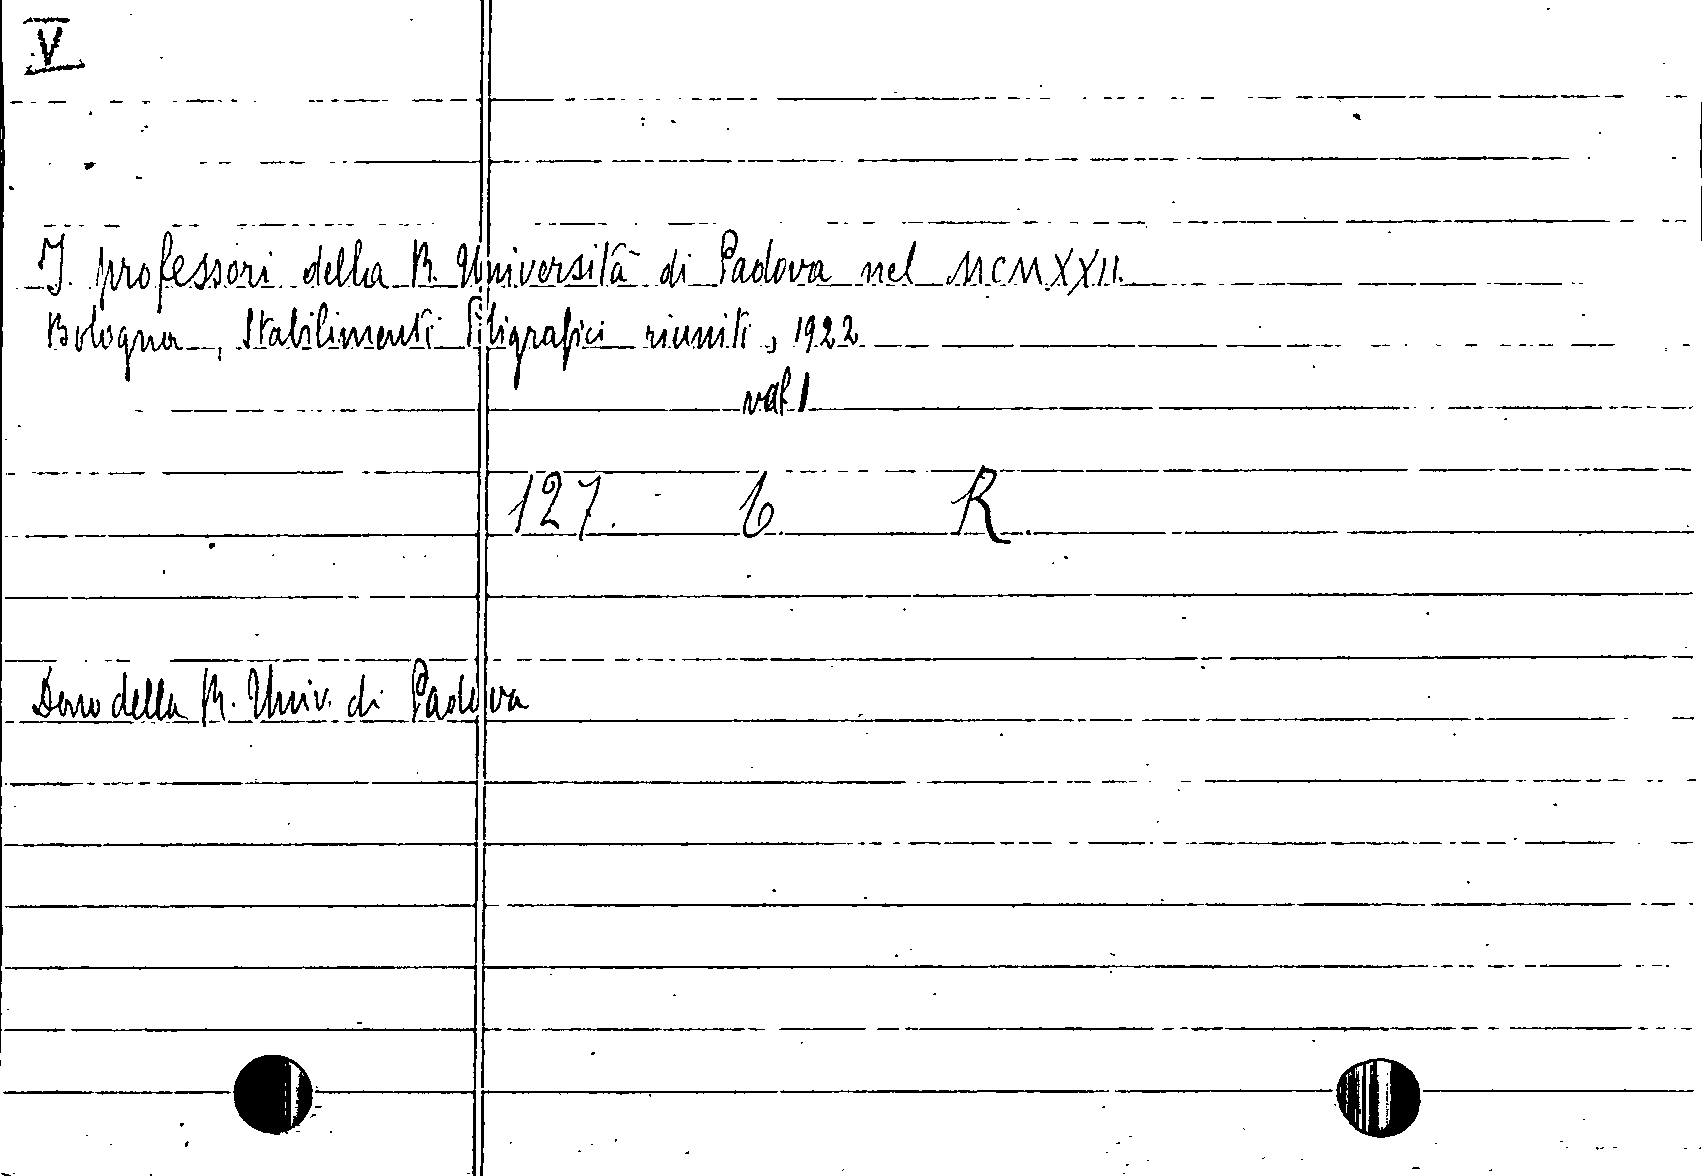 V
I professori della R. Università di Padova nel MCMXXII.
Bologna, Stabilimenti Poligrafici riuniti, 1922
vol. 1
127. 6. R.
Dono della R. Univ. di Padova